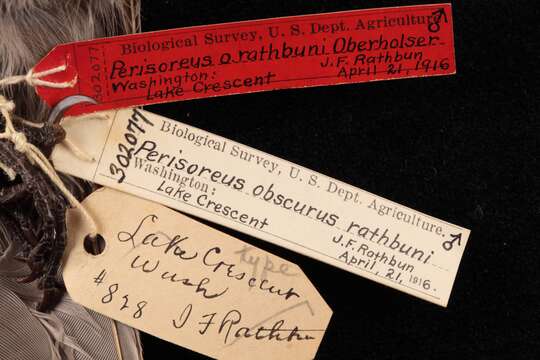 302077
Biological Survey, U. S. Dept. Agriculture. ♂
Perisoreus o. rathbuni Oberholser
Washington:
J.F. Rathbun
Lake Crescent
April 21, 1916
302077
Biological Survey, U. S. Dept. Agriculture.
Perisoreus obscurus rathbuni ♂
Washington:
Lake Crescent
J.F. Rathbun
April, 21, 1916.
Lake Crescent
type
Wash
#828 J F Rathbun